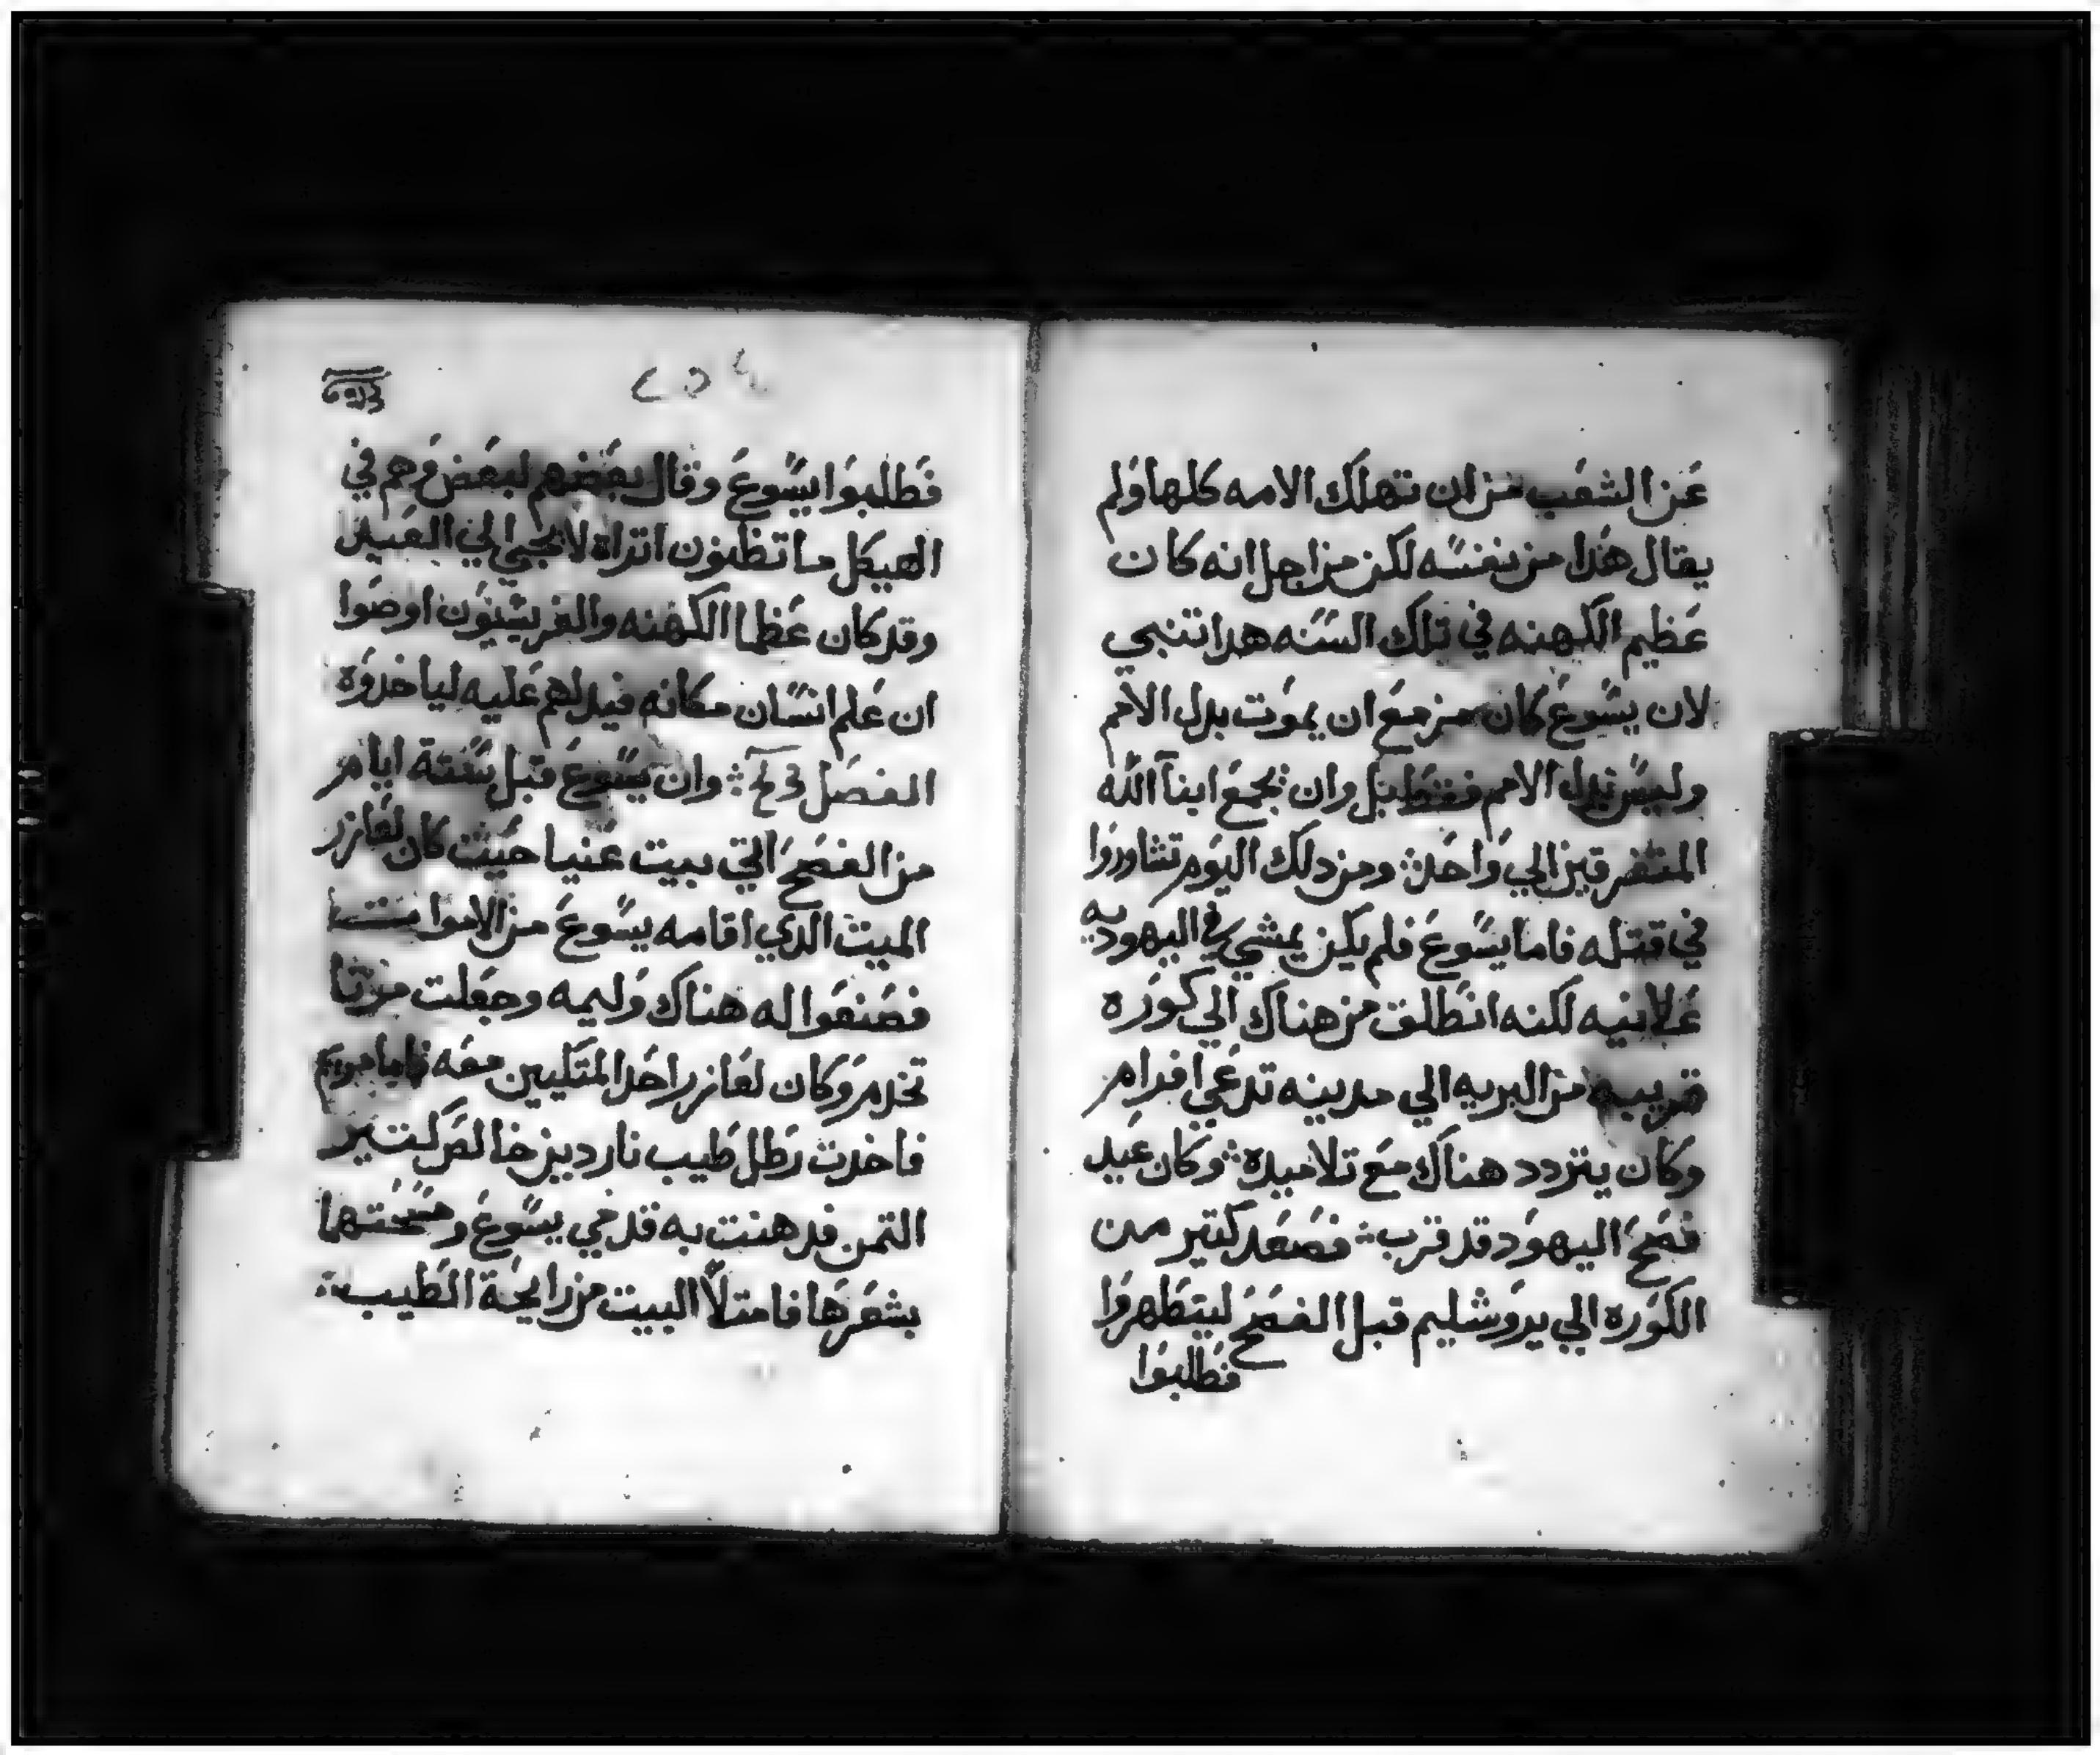 عن الشعب من ان تهلك الامه كلها ولم
يقال هذا من نفسه لكن من اجل انه كان
عظيم الكهنه في تلك السنه هدا تنبي
لان يسوع كان مزمع ان يموت بدل الامم
وليس بدل الامم فقط بل وان يجمع ابنآ الله
المتفرقين الي واحد ومن دلك اليوم تشاوروا
في قتله فاما يسوع فلم يكن يمشي في اليهوديه
علانيه لكنه انطلق من هناك الي كوره
قريبه من البريه الي مدينه تدعي افرام
وكان يتردد هناك مع تلاميده وكان عيد
فصح اليهود قد قرب فصعد كتير من
الكوره الي يروشليم قبل الفصح ليتطهروا
فطلبوا
٢٥٤
فطلبوا يسوع وقال بعضهم لبعض وهم في
الهيكل ما تظنون اتراه لا يجي الي العيد
وقد كان عظما الكهنه والفريسيون اوصوا
ان علم انسان مكانه فيدلهم عليه لياخدوه
الفصل وان يسوع قبل ستة ايام
من الفصح اتي بيت عنيا حيث كان لعازر
الميت الدي اقامه يسوع من الاموات
فصنعوا له هناك وليمه وجعلت مرتا
تخدم وكان لعازر احد المتكيين معه فاما مريم
فاخدت رطل طيب ناردين خالص كتير
التمن فدهنت به قدمي يسوع ومسحتها
بشعرها فامتلأ البيت من رايحة الطيب